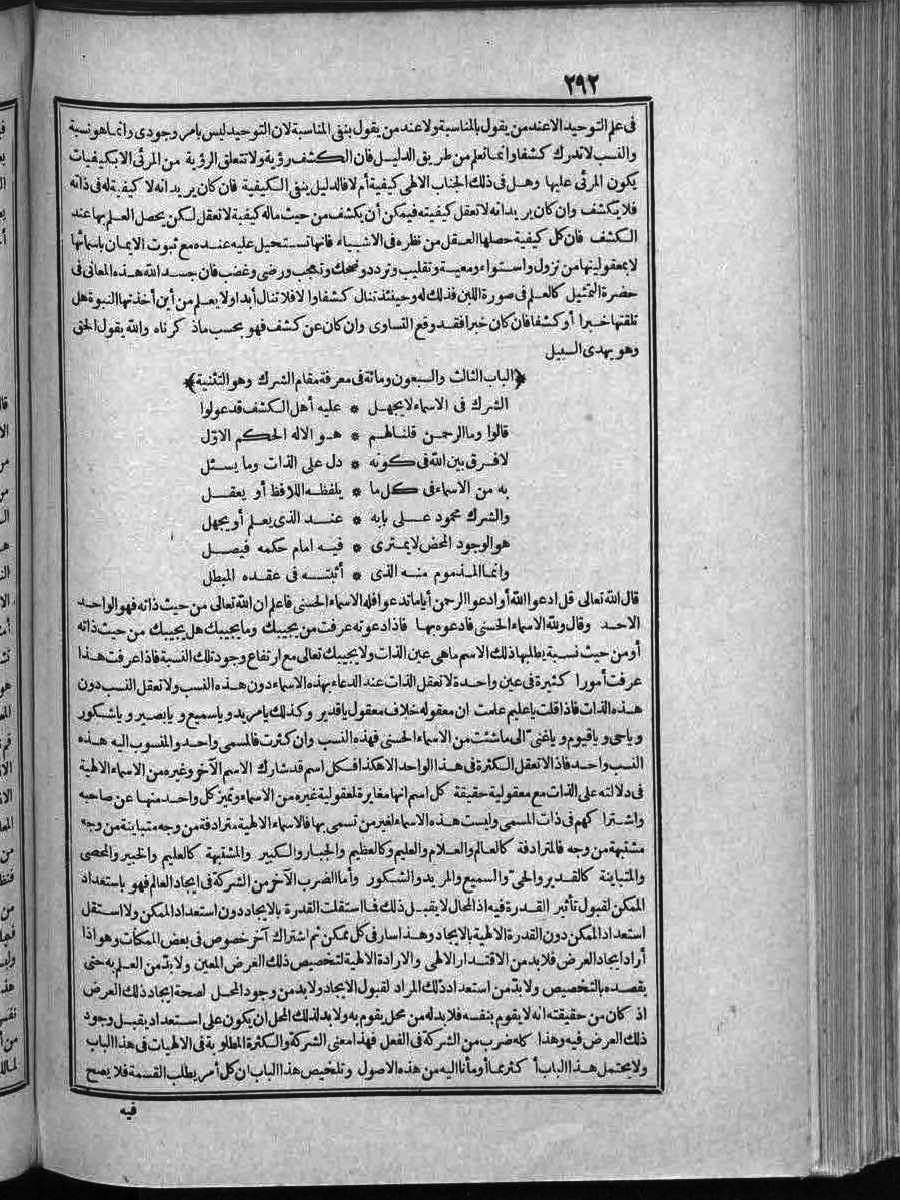 ٢٩٢
فى علم التوحيد الا عند من يقول بالمناسبة ولا عند من يقول بنفى المناسبة لان التوحيد ليس بامر وجودى وانما هو نسبة
والنسب لا تدرك كشفا وانما تعلم من طريق الدليل فان الكشف رؤية ولا تتعلق الرؤية من المرئى الا بكيفيات
يكون المرئى عليها وهل فى ذلك الجناب الالهى كيفية أم لا فالدليل ينفى الكيفية فان كان يريد انه لا كيفية له فى ذاته
فلا يكشف وان كان يريد انه لا تعقل كيفيته فيمكن أن يكشف من حيث ماله كيفية لا تعقل لكن يحصل العلم بها عند
الكشف فان كل كيفية حصلها العقل من نظره فى الاشياء فانها تستحيل عليه عنده مع ثبوت الايمان باسمائها
لا بمعقوليتها من نزول واستواء ومعية وتقليب وتردد وضحك وتعجب ورضى وغضب فان جسد الله هذه المعانى فى
حضرة التمثيل كالعلم فى صورة اللبن فذلك له وحينئذ تنال كشفا والا فلا تنال أبدا ولا يعلم من أين أخذتها النبوة هل
تلقتها خبرا أو كشفا فان كان خبرا فقد وقع التساوى وان كان عن كشف فهو بحسب ماذكرناه والله يقول الحق
وهو يهدى السبيل
﴿الباب الثالث والسبعون ومائة فى معرفة مقام الشرك وهو التثنية﴾
الشرك فى الاسماء لا يجهل * عليه أهل الكشف قد عولوا
قالوا وما الرحمن قلنا لهم * هو الاله الحكم الاوّل
لا فرق بين الله فى كونه * دل على الذات وما يسئل
به من الاسماء فى كل ما * يلفظه اللافظ أو يعقل
والشرك محمود على بابه * عند الذى يعلم أو يجهل
هو الوجود المحض لا يمترى * فيه امام حكمه فيصل
وانما المذموم منه الذى * أثبته فى عقده المبطل
قال الله تعالى قل ادعوا الله أو ادعوا الرحمن أياما تدعوا فله الاسماء الحسنى فاعلم ان الله تعالى من حيث ذاته فهو الواحد
الاحد وقال ولله الاسماء الحسنى فادعوه بها فاذا دعوته عرفت من يجيبك وما يجيبك هل يجيبك من حيث ذاته
أو من حيث نسبة يطلبها ذلك الاسم ما هى عين الذات ولا يجيبك تعالى مع ارتفاع وجود تلك النسبة فاذا عرفت هذا
عرفت أمورا كثيرة فى عين واحدة لا تعقل الذات عند الدعاء بهذه الاسماء دون هذه النسب ولا تعقل النسب دون
هذه الذات فاذا قلت يا عليم علمت ان معقوله خلاف معقول ياقدير وكذلك يا مريد و يا سميع و يا بصير و يا شكور
و يا حى و يا قيوم و يا غنىّ الى ما شئت من الاسماء الحسنى فهذه النسب وان كثرت فالمسمى واحد والمنسوب اليه هذه
النسب واحد فاذا لا تعقل الكثرة فى هذا الواحد الا هكذا فكل اسم قد شارك الاسم الآخر وغيره من الاسماء الالهية
فى دلالته على الذات مع معقولية حقيقة كل اسم انها مغايرة لمعقولية غيره من الاسماء وتميز كل واحد منها عن صاحبه
واشتراكهم فى ذات المسمى وليست هذه الاسماء لغير من تسمى بها فالاسماء الالهية مترادفة من وجه متباينة من وجه
مشتبهة من وجه فالمترادفة كالعالم والعلام والعليم وكالعظيم والجبار والكبير والمشتبهة كالعليم والخبير والمحصى
والمتباينة كالقدير والحىّ والسميع والمريد والشكور وأما الضرب الآخر من الشركة فى ايجاد العالم فهو باستعداد
الممكن لقبول تأثير القدرة فيه اذ المحال لا يقبل ذلك فما استقلت القدرة بالايجاد دون استعداد الممكن ولا استقل
استعداد الممكن دون القدرة الالهية بالايجاد وهذا سار فى كل ممكن ثم اشتراك آخر خصوص فى بعض الممكنات وهو اذا
أراد ايجاد العرض فلابد من الاقتدار الالهى والارادة الالهية لتخصيص ذلك العرض المعين ولابدّ من العلم به حتى
يقصده بالتخصيص ولابدّ من استعداد ذلك المراد لقبول الايجاد ولابد من وجود المحل لصحة ايجاد ذلك العرض
اذ كان من حقيقته انه لا يقوم بنفسه فلابد له من محل يقوم به ولابد لذلك المحل ان يكون على استعداد يقبل وجود
ذلك العرض فيه وهذا كله ضرب من الشركة فى الفعل فهذا معنى الشركة والكثرة المطلوبة فى الالهيات فى هذا الباب
ولا يحتمل هذا الباب أكثر مما أومأنا اليه من هذه الاصول وتلخيص هذا الباب ان كل أمر يطلب القسمة فلا يصح
فيه